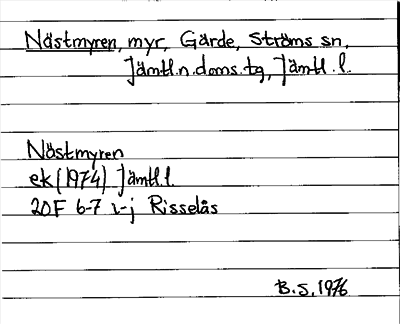 Nästmyren, myr, Gärde, Ströms sn,
Jämtl.n.doms.tg, Jämtl.l.
Nästmyren
ek (1974) Jämtl.l.
20F 6-7 i-j Risselås
B.S. 1976